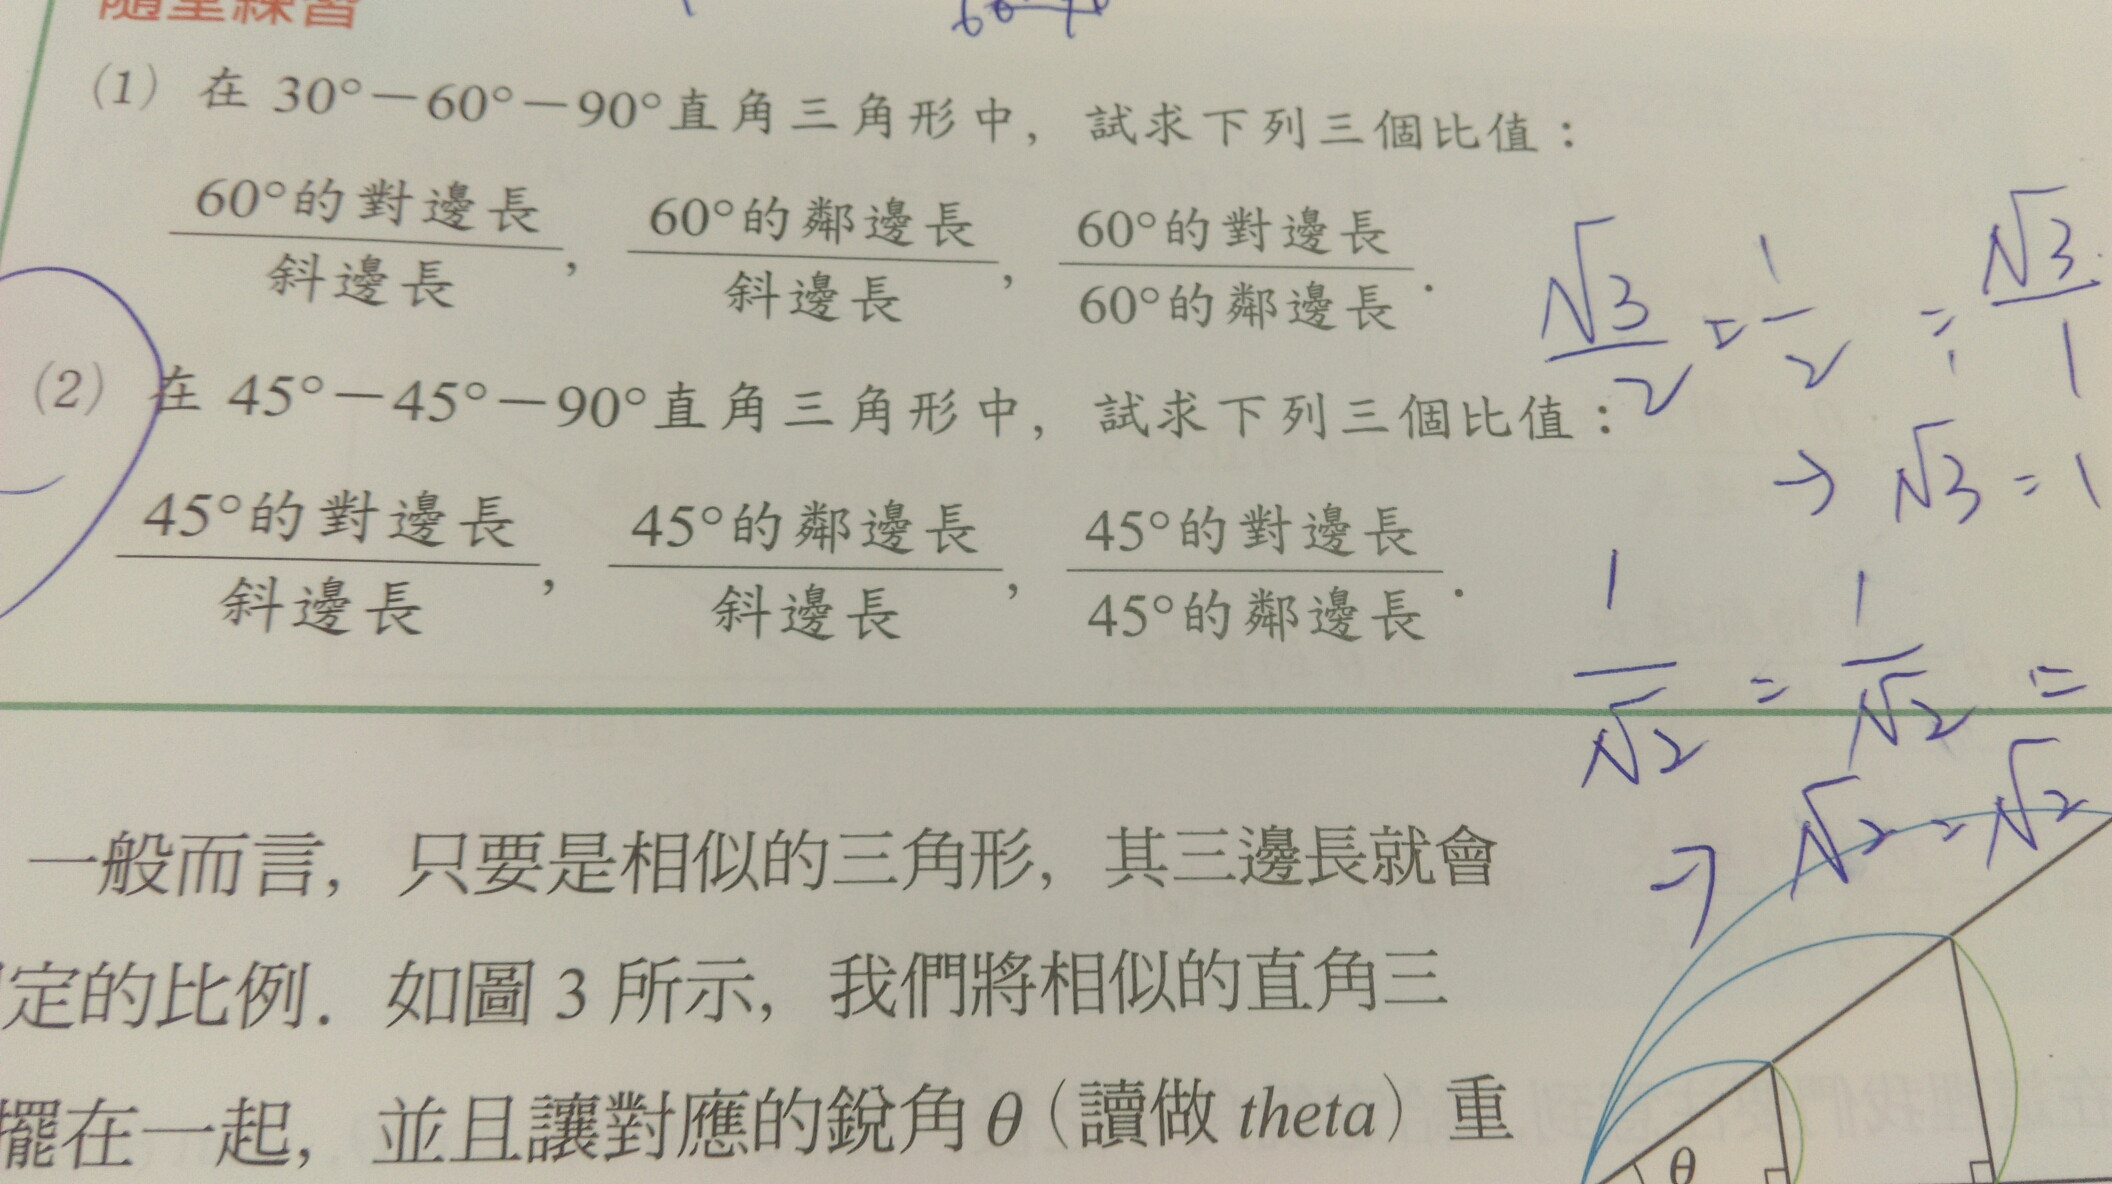 隨堂練習
(1) 在 30°－60°－90°直角三角形中，試求下列三個比值：
60°的對邊長/斜邊長，60°的鄰邊長/斜邊長，60°的對邊長/60°的鄰邊長．
√3/2 = 1/2 = √3/1
(2) 在 45°－45°－90°直角三角形中，試求下列三個比值：
→ √3 = 1
45°的對邊長/斜邊長，45°的鄰邊長/斜邊長，45°的對邊長/45°的鄰邊長．
1/√2 = 1/√2 =
→ √2 = √2
一般而言，只要是相似的三角形，其三邊長就會
定的比例．如圖 3 所示，我們將相似的直角三
擺在一起，並且讓對應的銳角 θ（讀做 theta）重
θ